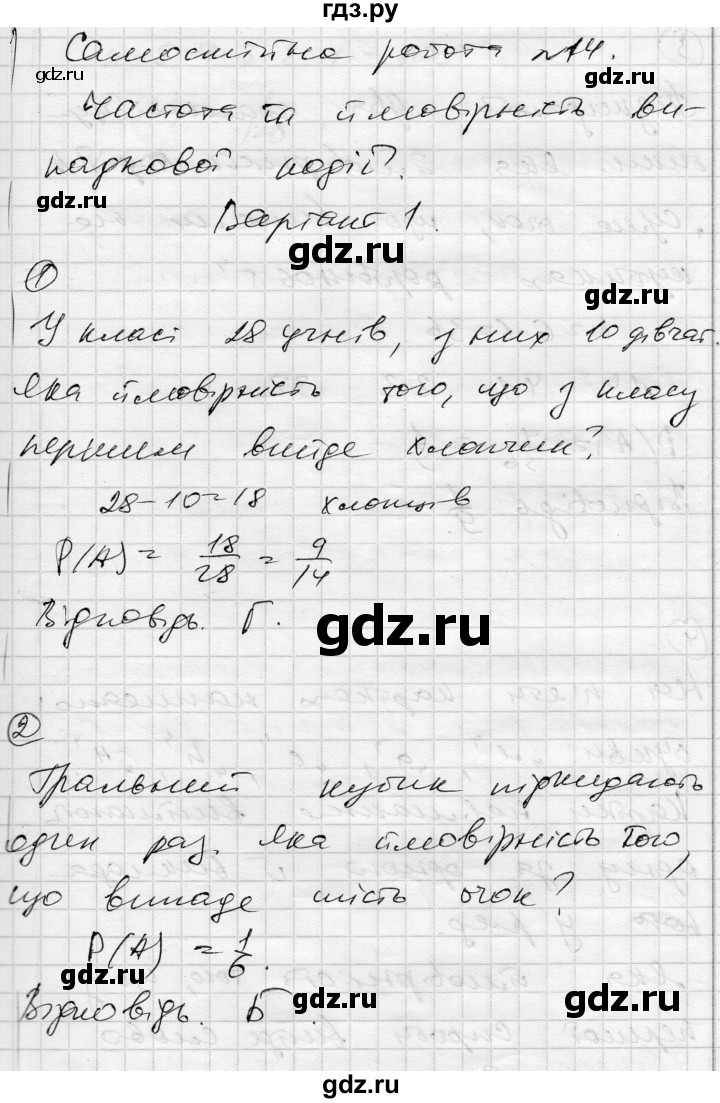 гдз.ру
Самостійна робота №14.
Частота та ймовірність ви-
падкової події.
Варіант 1.
①
У класі 28 учнів, з них 10 дівчат.
Яка ймовірність того, що з класу
першим вийде хлопчик?
28-10=18 хлопців
P(A) = 18/28 = 9/14
Відповідь. Г.
②
Гральний кубик підкидають
один раз. Яка ймовірність того,
що випаде шість очок?
P(A) = 1/6.
Відповідь. Б.
gdz.ru
gdz.ru
gdz.ru
gdz.ru
gdz.ru
gdz.ru
gdz.ru
gdz.ru
gdz.ru
gdz.ru
gdz.ru
gdz.ru
gdz.ru